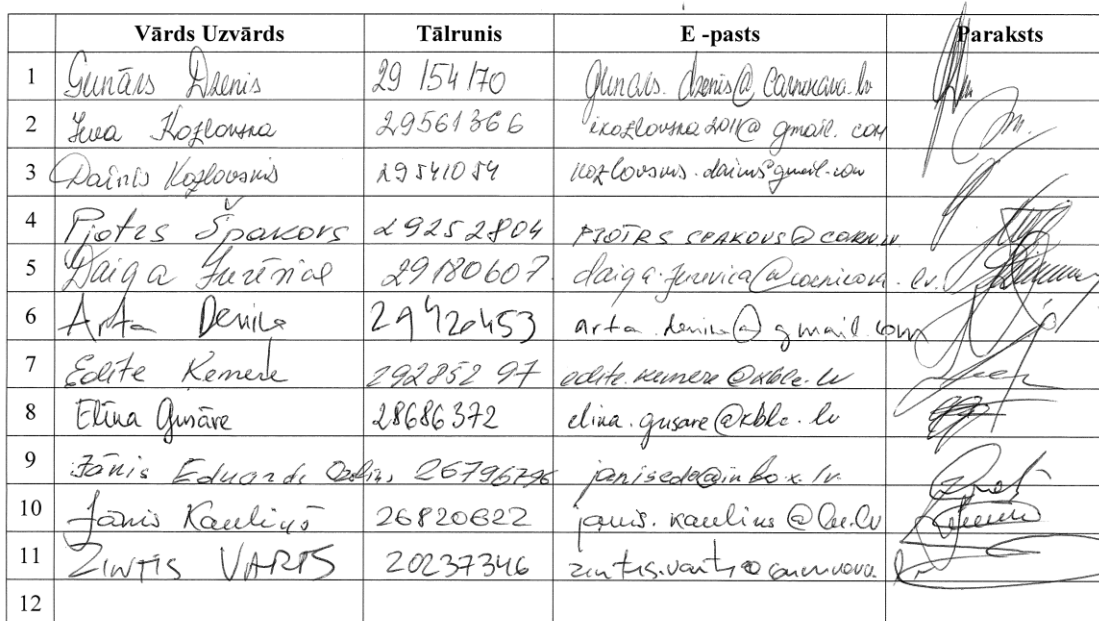 Vārds Uzvārds Tālrunis E -pasts Paraksts
1 Gunārs Dzenis 29 154 170 gunars.dzenis@carnikava.lv
2 Ieva Kozlovska 29561366 ikozlovska2011@gmail.com
3 Dainis Kozlovskis 29541054 kozlovskis.dainis@gmail.com
4 Pjotrs Špakovs 29252804
5 Daiga Jurēvica 29180607 daiga.jurevica@carnikava.lv
6 Arta Deniņa 29420453 arta.denina@gmail.com
7 Edīte Ķemere 29285297 edite.kemere@kblc.lv
8 Elīna Gusāre 28686372 elina.gusare@kblc.lv
9 Jānis Eduards 26796796 janisedo@inbox.lv
10 Jānis Kauliņš 26820622 janis.kaulins@lu.lv
11 ZINTIS VARTS 20237346 zintis.varts@carnikava.
12